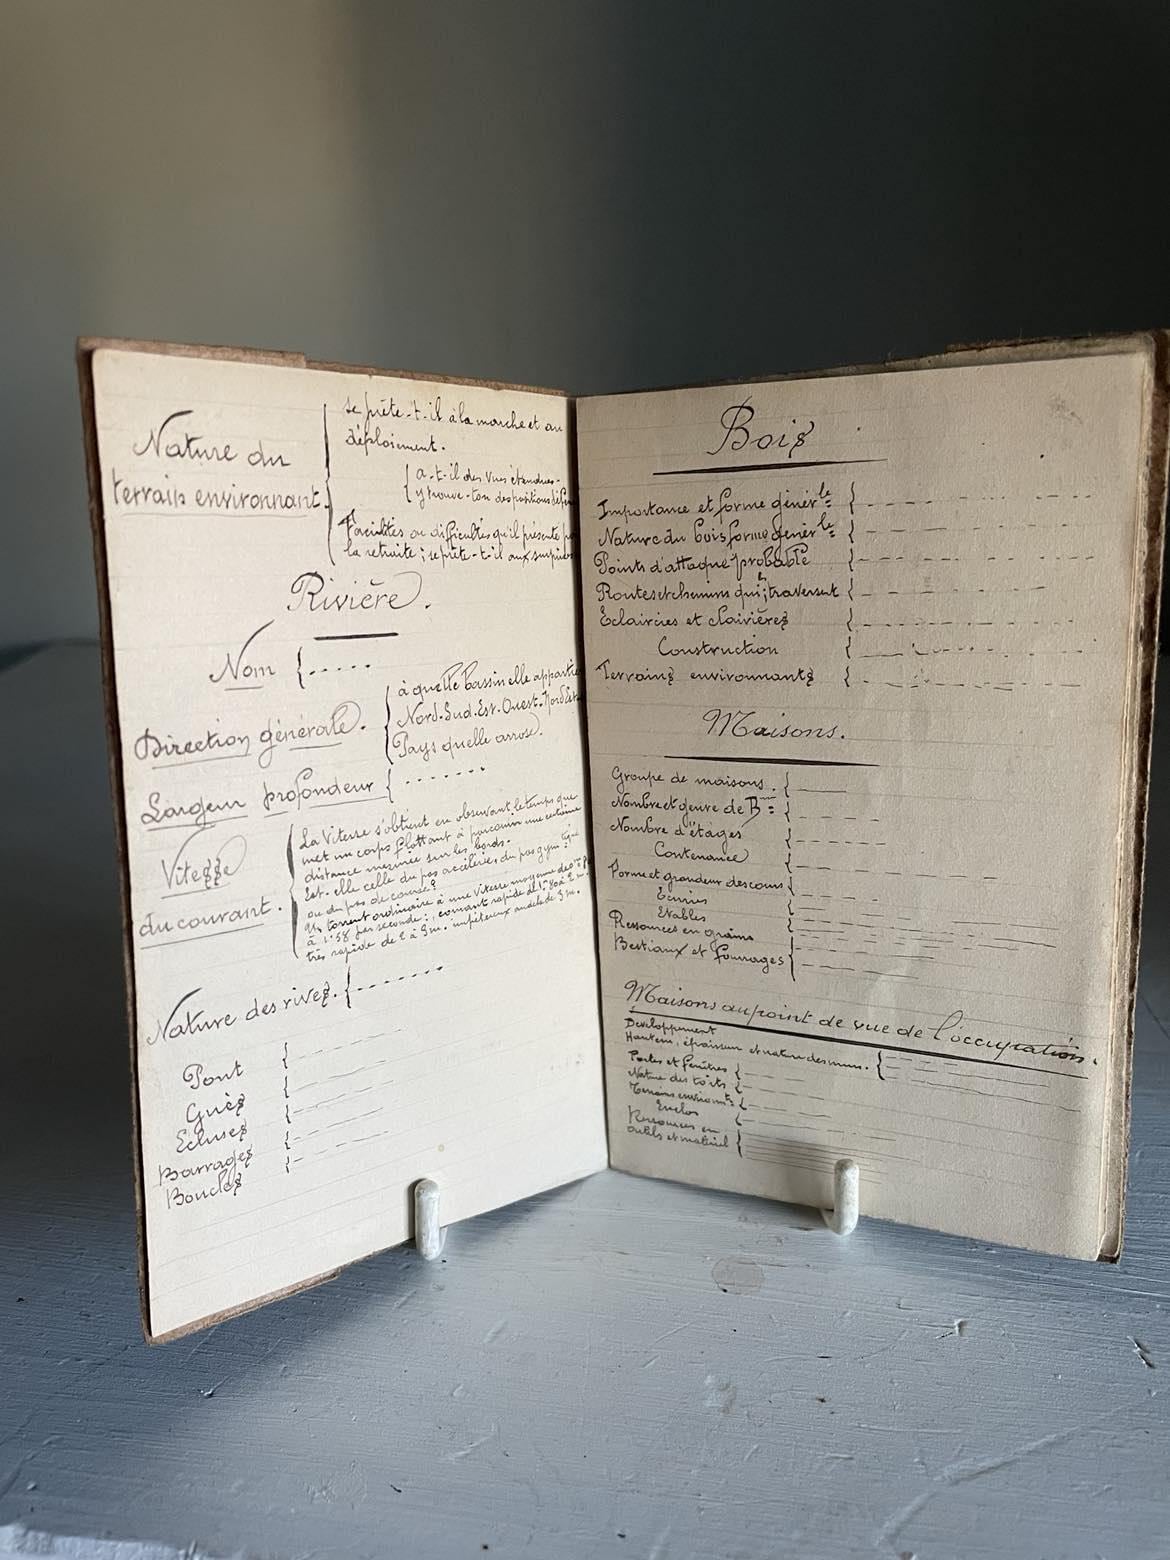 Nature du
terrain environnant.
se prête-t-il à la marche et au
déploiement.
a-t-il des vues étendues-
y trouve-t-on des positions défen
Facilités ou difficultés qu'il présente p
la retraite; se prête-t-il aux surprises
Rivière.
Nom
Direction générale.
à quelle bassin elle appartie
Nord-Sud-Est-Ouest-Nord Est
Pays quelle arrose.
Largeur profondeur
Vitesse
du courant.
La Vitesse s'obtient en observant le temps que
met un corps flottant à parcourir une certaine
distance mesurée sur les bords.
Est-elle celle du pas accéléré du pas gymtique
ou du pas de course?
Un torrent ordinaire a une vitesse moyenne de
à 1m58 par seconde: courant rapide de
très rapide de 2 à 3m. impétueux audelà de 3m.
Nature des rives.
Pont
Gués
Ecluses
Barrages
Boucles
Bois
Importance et forme génér le
Nature du bois forme génér le
Points d'attaque probable
Routes et chemins qui le traversent
Eclaircies et Clairières
Construction
Terrains environnants
Maisons.
Groupe de maisons.
Nombre et genre de B
Nombre d'étages
Contenance
Forme et grandeur des cours
Ecuries
Etables
Ressources en grains
Bestiaux et fourrages
Maisons au point de vue de l'occupation.
Developpement
Hauteur, épaisseur et nature des murs.
Portes et fenêtres
Nature des toits
Terrains environts
Enclos
Ressources en
outils et matériel